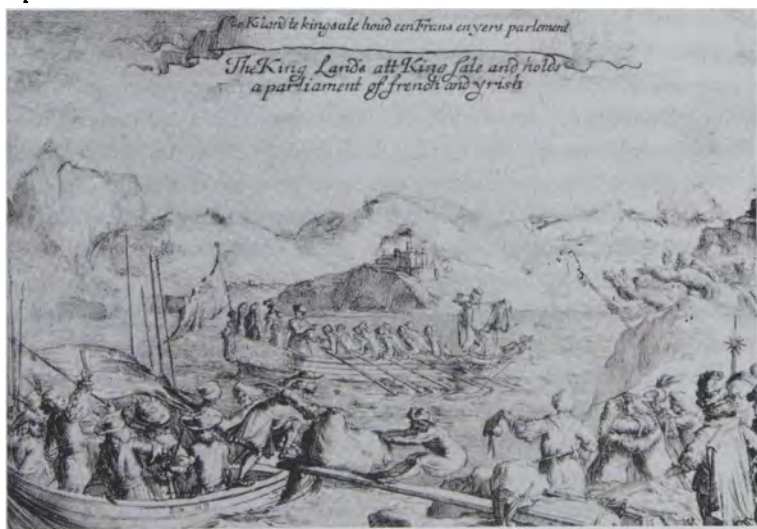 land te kingsale houd een Frans en yers parlement
The King Lands att King sale and holds
a parliament of french and yrish